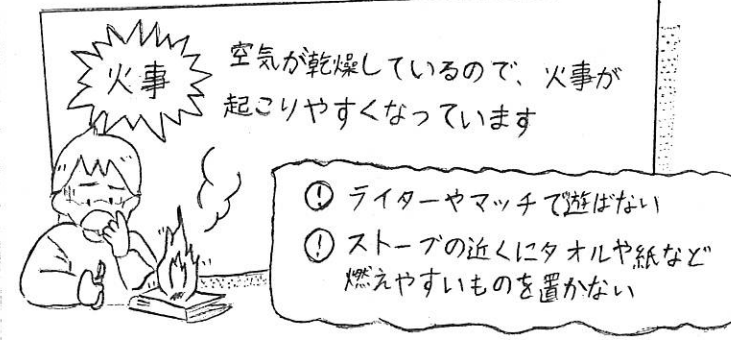 火事
空気が乾燥しているので、火事が
起こりやすくなっています
! ライターやマッチで遊ばない
! ストーブの近くにタオルや紙など
燃えやすいものを置かない